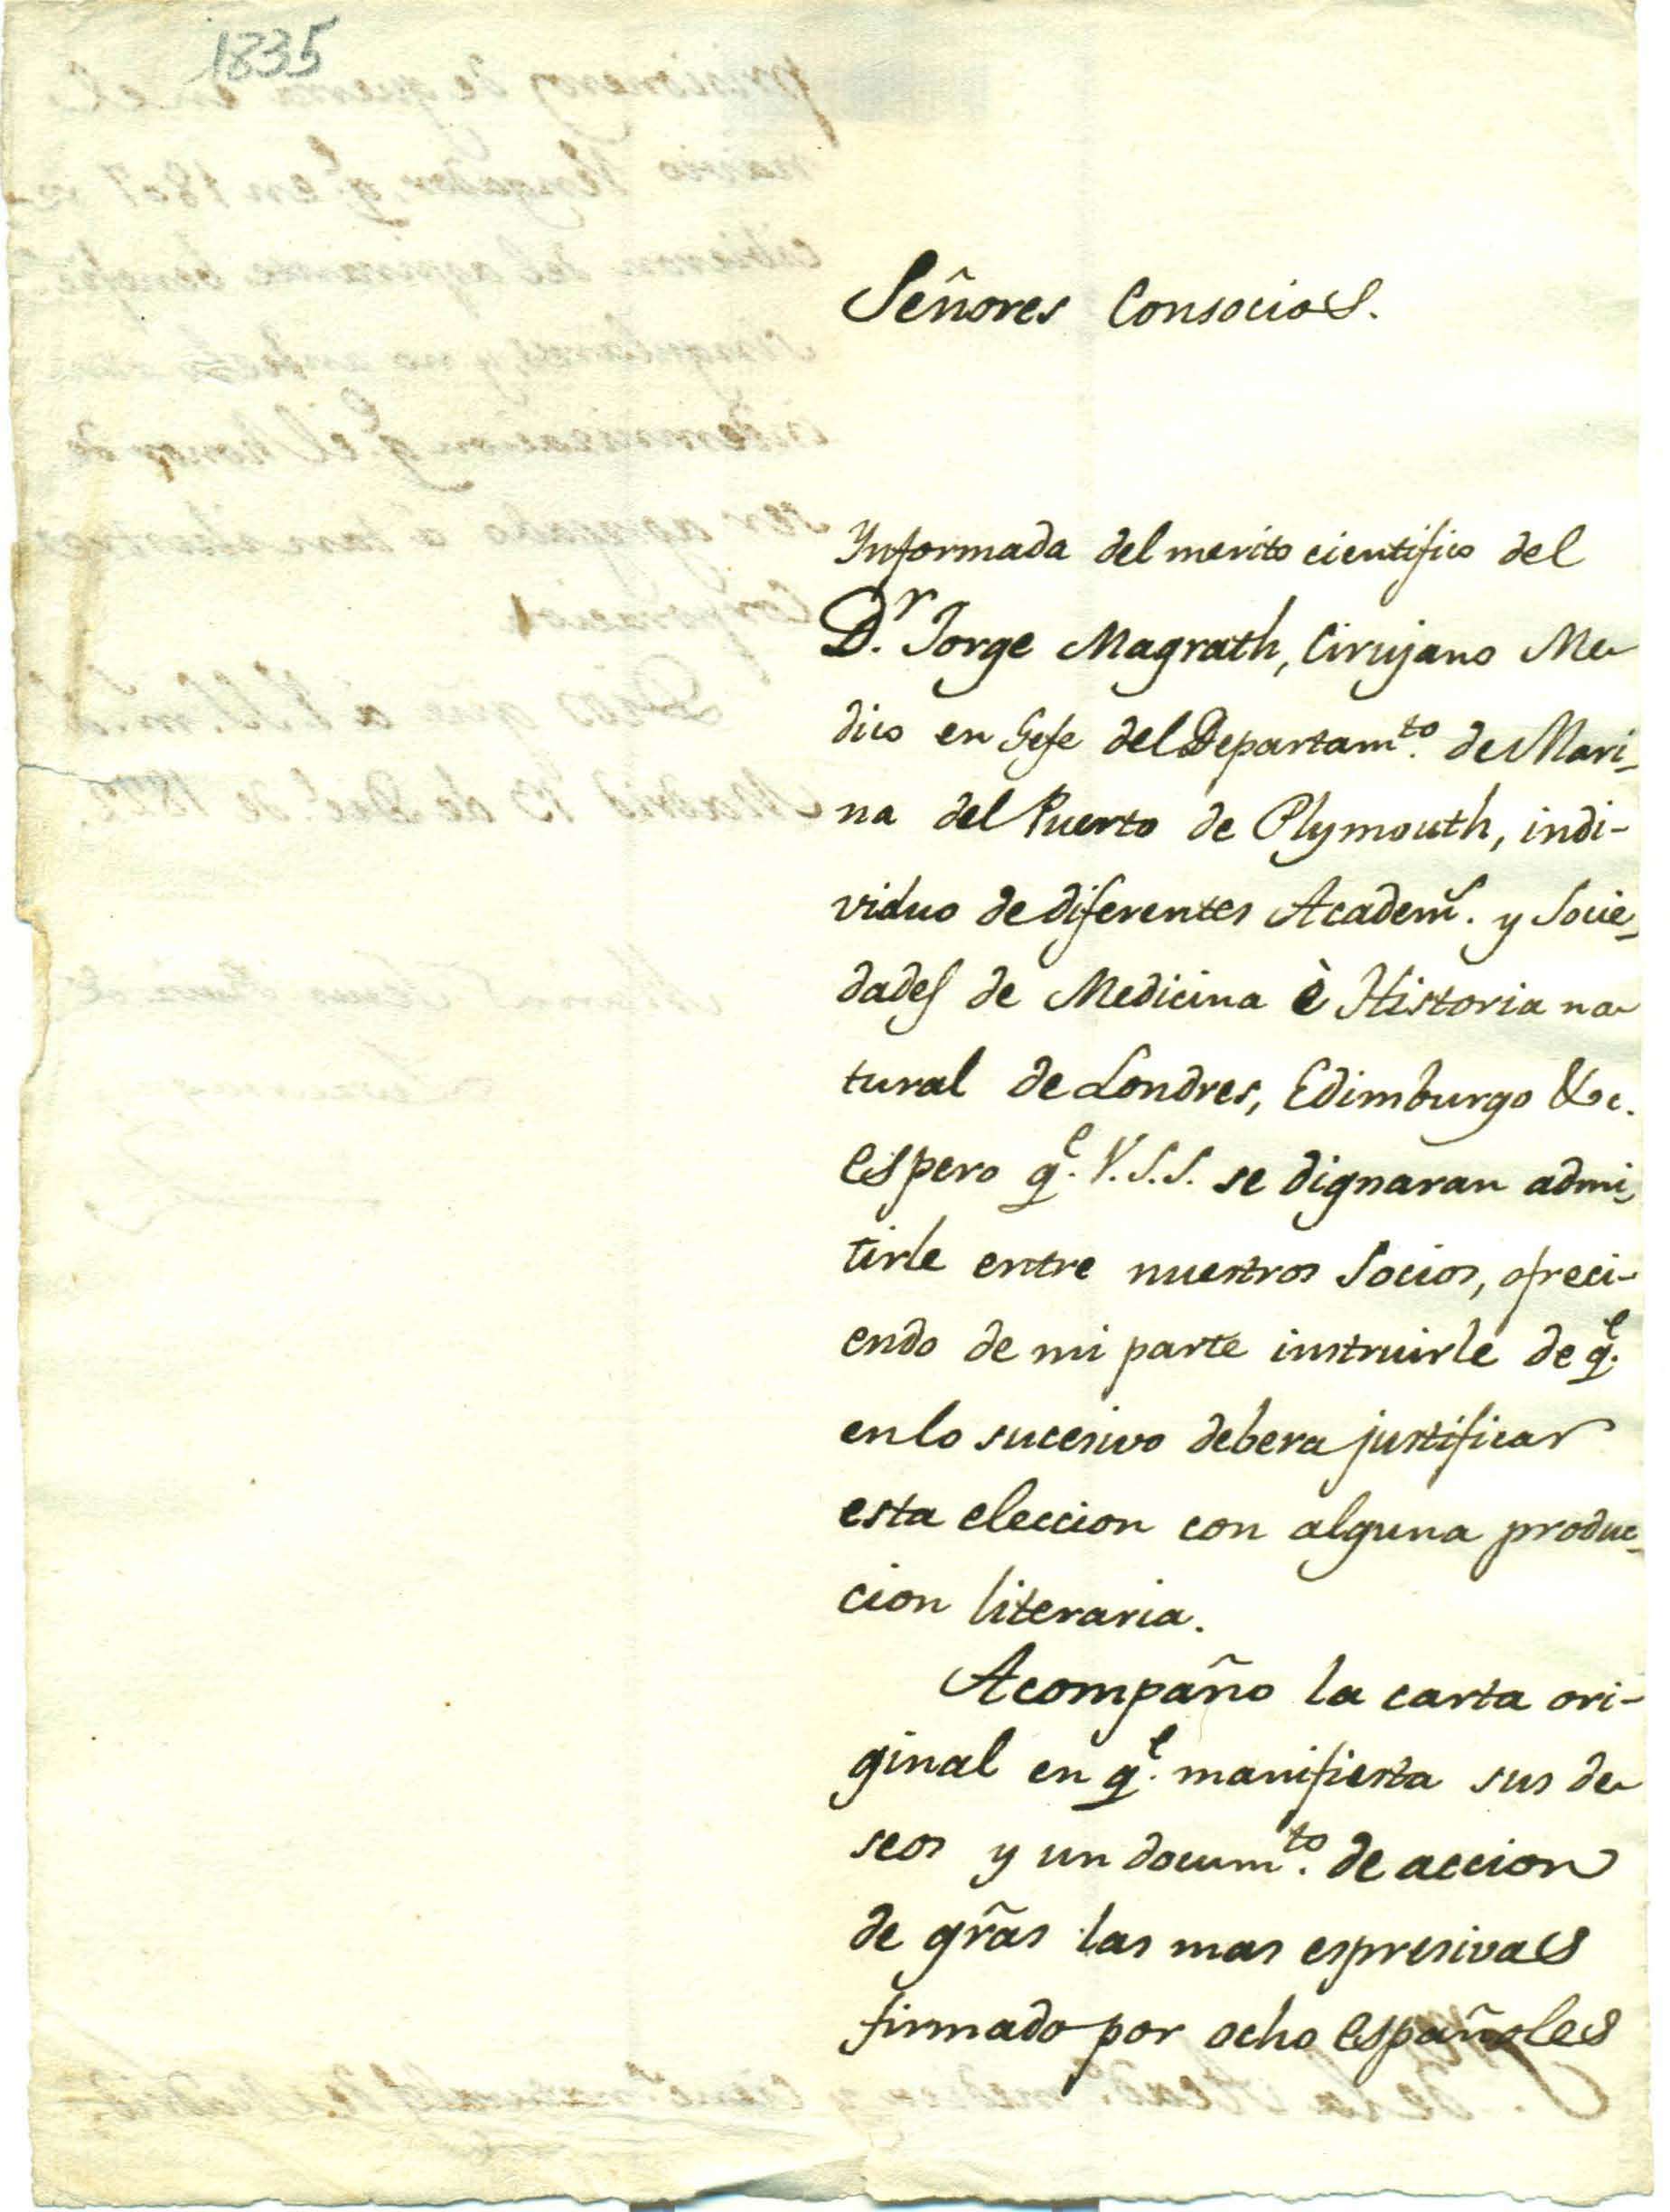 1835
Señores Consocios.
Ynformada del merito cientifico del
Dr. Jorge Magrath, Cirujano Me-
dico en Gefe del Departamto. de Mari-
na del Puerto de Plymouth, indi-
viduo de diferentes Academs. y Socie-
dades de Medicina è Historia na-
tural de Londres, Edimburgo &c.
espero qe. V.S.S. se dignaran admi-
tirle entre nuestros Socios, ofreci-
endo de mi parte instruirle de qe.
en lo sucesivo debera justificar
esta eleccion con alguna produc-
cion literaria.
Acompaño la carta ori-
ginal en qe. manifiesta sus de-
seos y un documto. de accion
de grãs las mas espresivas
firmado por ocho españoles